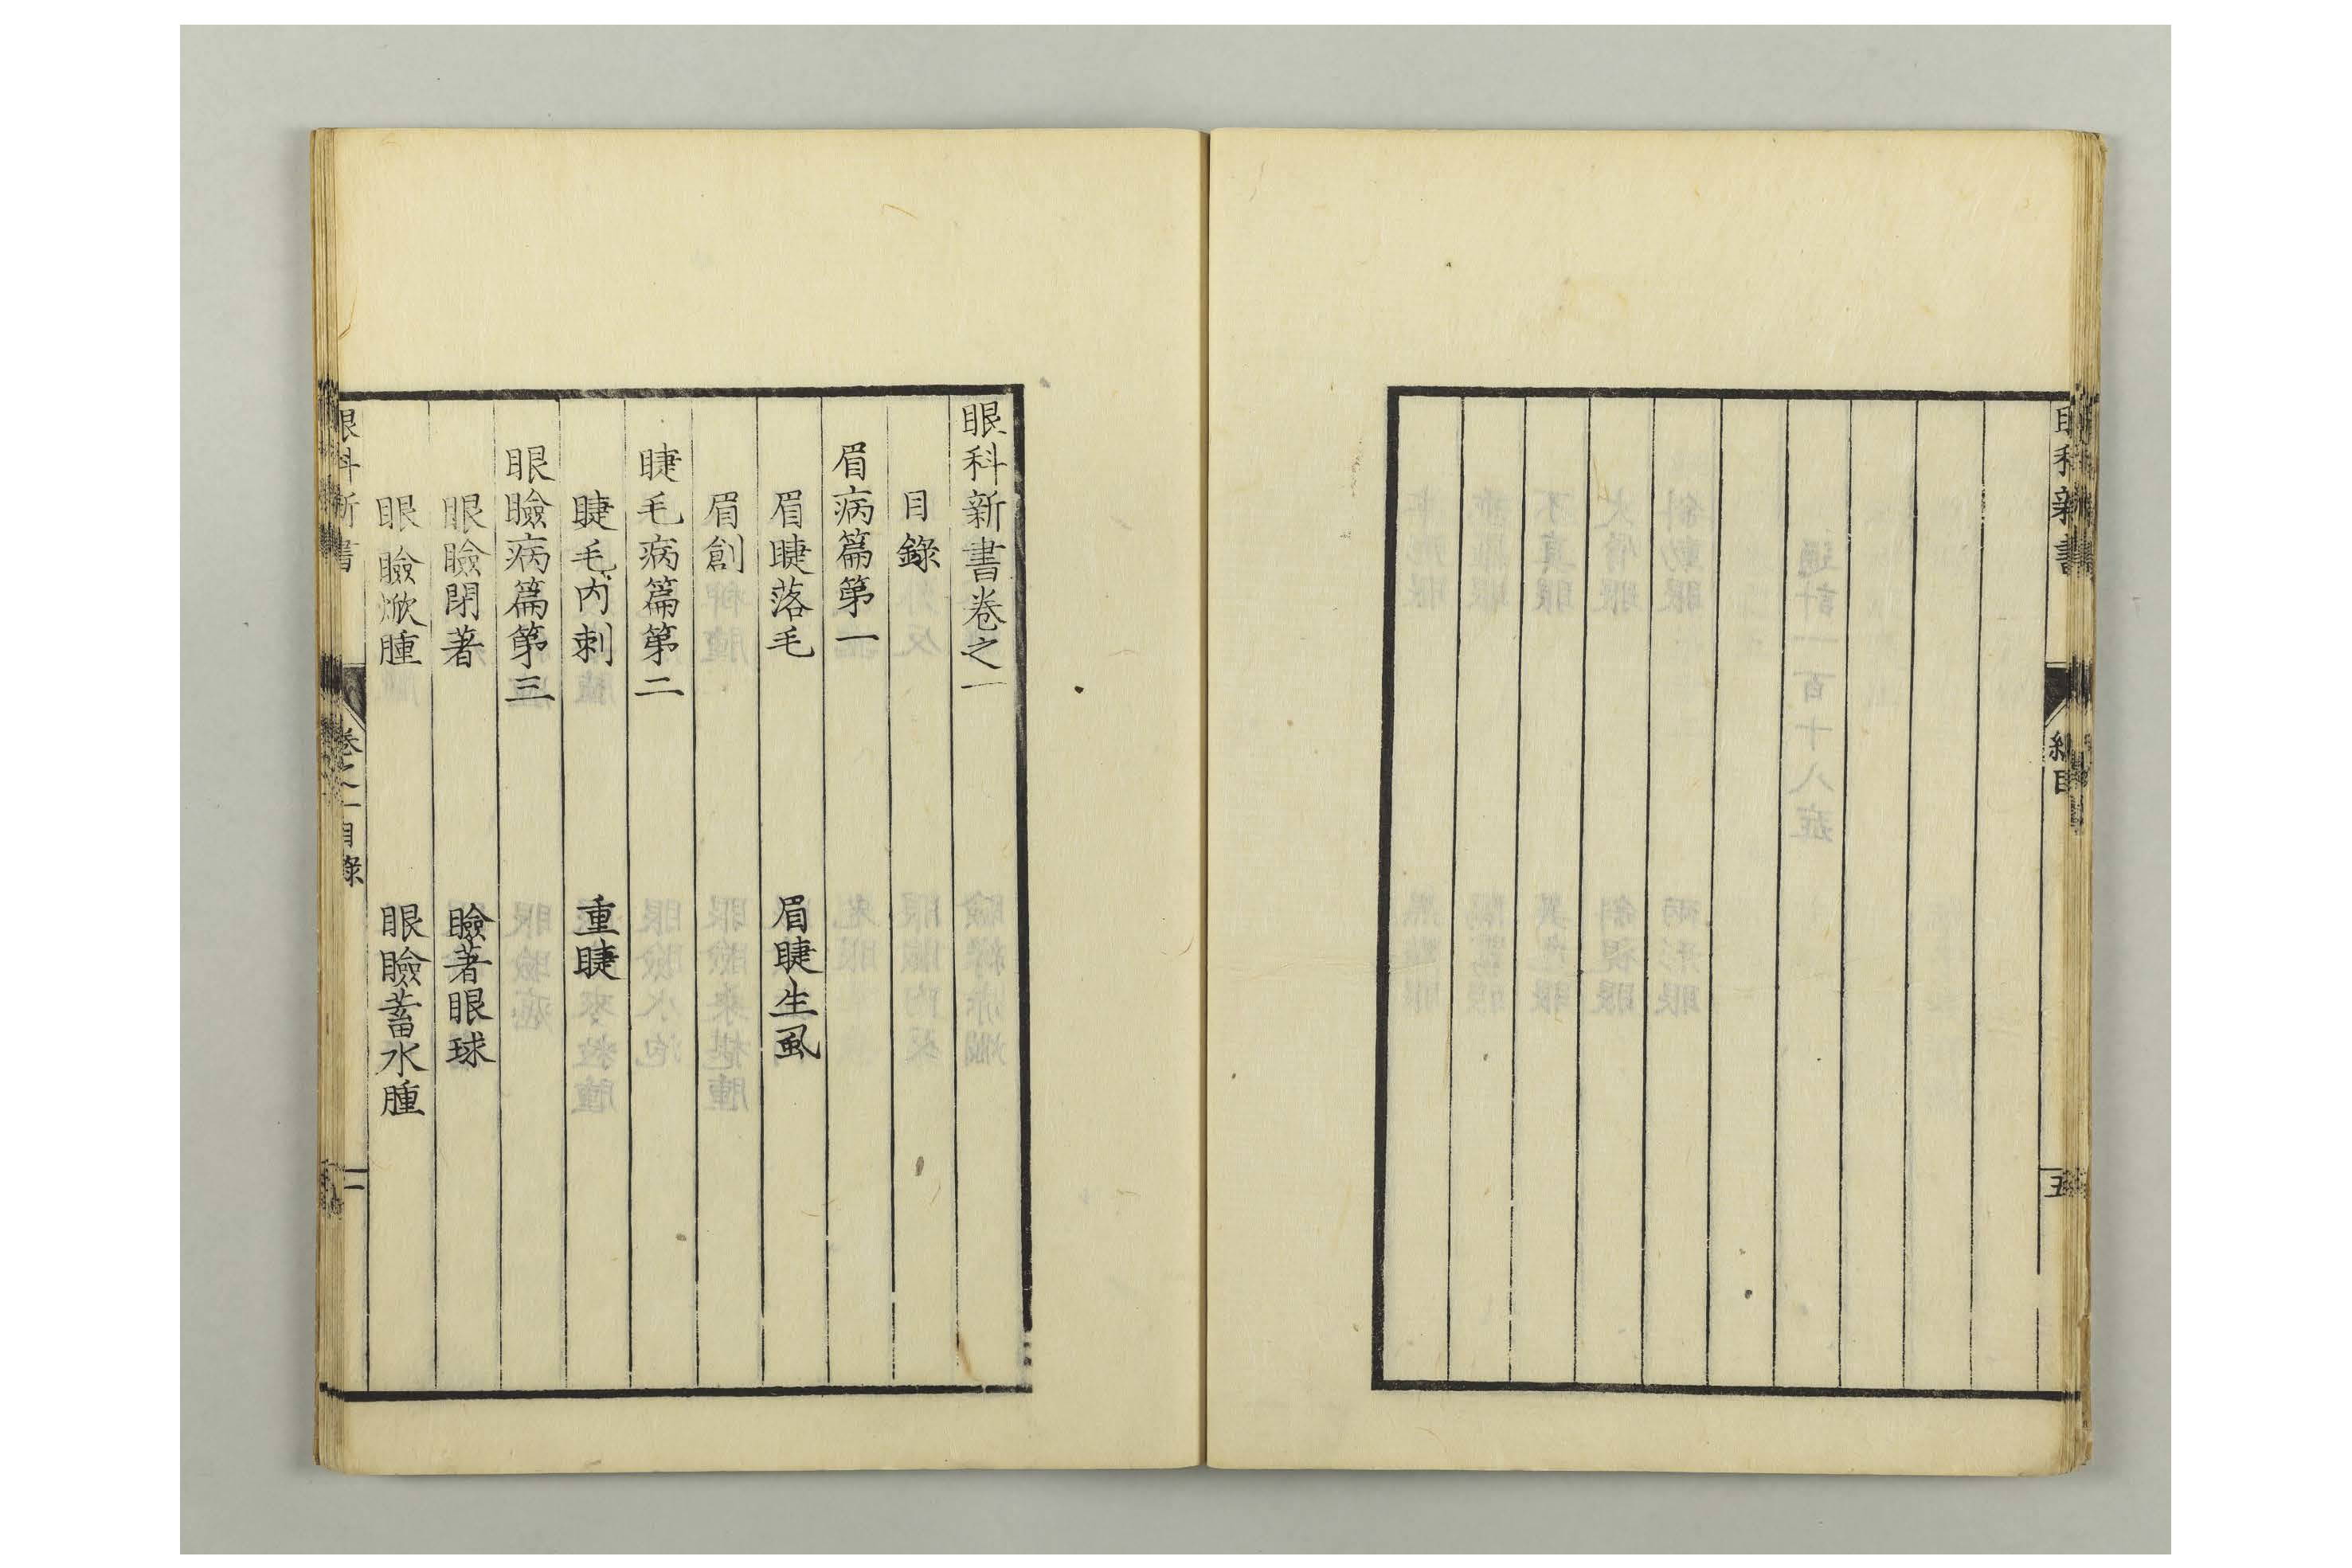 眼科新書
五
眼科新書卷之一
目錄
眉病篇第一
眉睫落毛 眉睫生虱
眉創
睫毛病篇第二
睫毛内刺 重睫
眼瞼病篇第三
眼瞼閉著 瞼著眼球
眼瞼焮腫 眼瞼蓄水腫
眼科新書
卷之一目錄